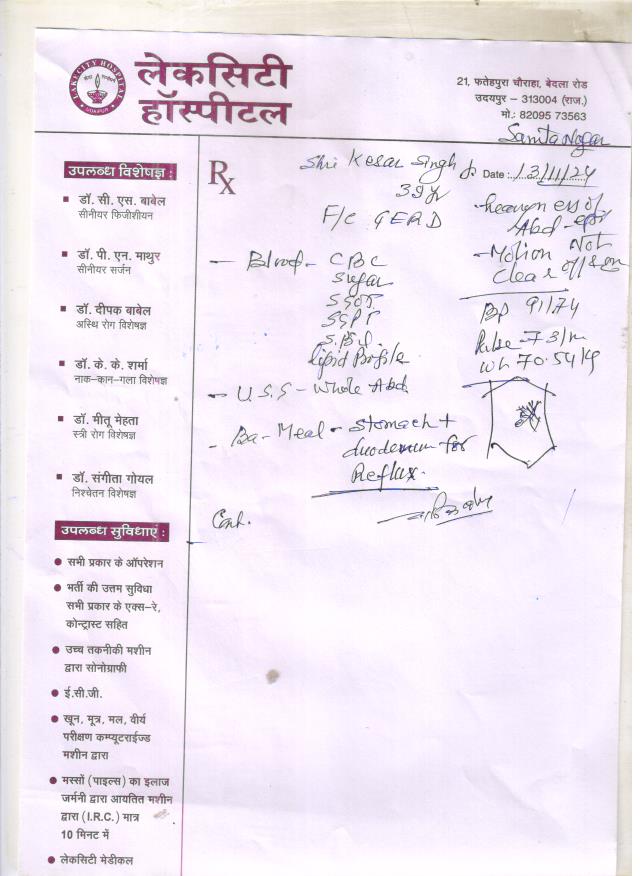 LAKECITY HOSPITAL
UDAIPUR
लेकसिटी
हॉस्पीटल
21, फतेहपुरा चौराहा, बेदला रोड
उदयपुर – 313004 (राज.)
मो.: 82095 73563
Samta Nagar
उपलब्ध विशेषज्ञ :
डॉ. सी. एस. बाबेल
सीनीयर फिजीशीयन
डॉ. पी. एन. माथुर
सीनीयर सर्जन
डॉ. दीपक बाबेल
अस्थि रोग विशेषज्ञ
डॉ. के. के. शर्मा
नाक-कान-गला विशेषज्ञ
डॉ. मीतू मेहता
स्त्री रोग विशेषज्ञ
डॉ. संगीता गोयल
निश्चेतन विशेषज्ञ
उपलब्ध सुविधाएं :
सभी प्रकार के ऑपरेशन
भर्ती की उत्तम सुविधा
सभी प्रकार के एक्स-रे,
कोन्ट्रास्ट सहित
उच्च तकनीकी मशीन
द्वारा सोनोग्राफी
ई.सी.जी.
खून, मूत्र, मल, वीर्य
परीक्षण कम्प्यूटराईज्ड
मशीन द्वारा
मस्सों (पाइल्स) का इलाज
जर्मनी द्वारा आयतित मशीन
द्वारा (I.R.C.) मात्र
10 मिनट में
लेकसिटी मेडीकल
Rx
Shri Kesar Singh Ji
39yr
Date : 13/11/24
F/c GERD
heaviness of
Abd
- Motion Not
clear off & on
BP 91/74
Pulse - 73/m
Wt 70.54 kg
- Blood - CBC
Sugar
SGOT
SGPT
S. Bil.
lipid Profile
- U.S.G - Whole Abd
- Ba-Meal - Stomach +
duodenum for
Reflux.